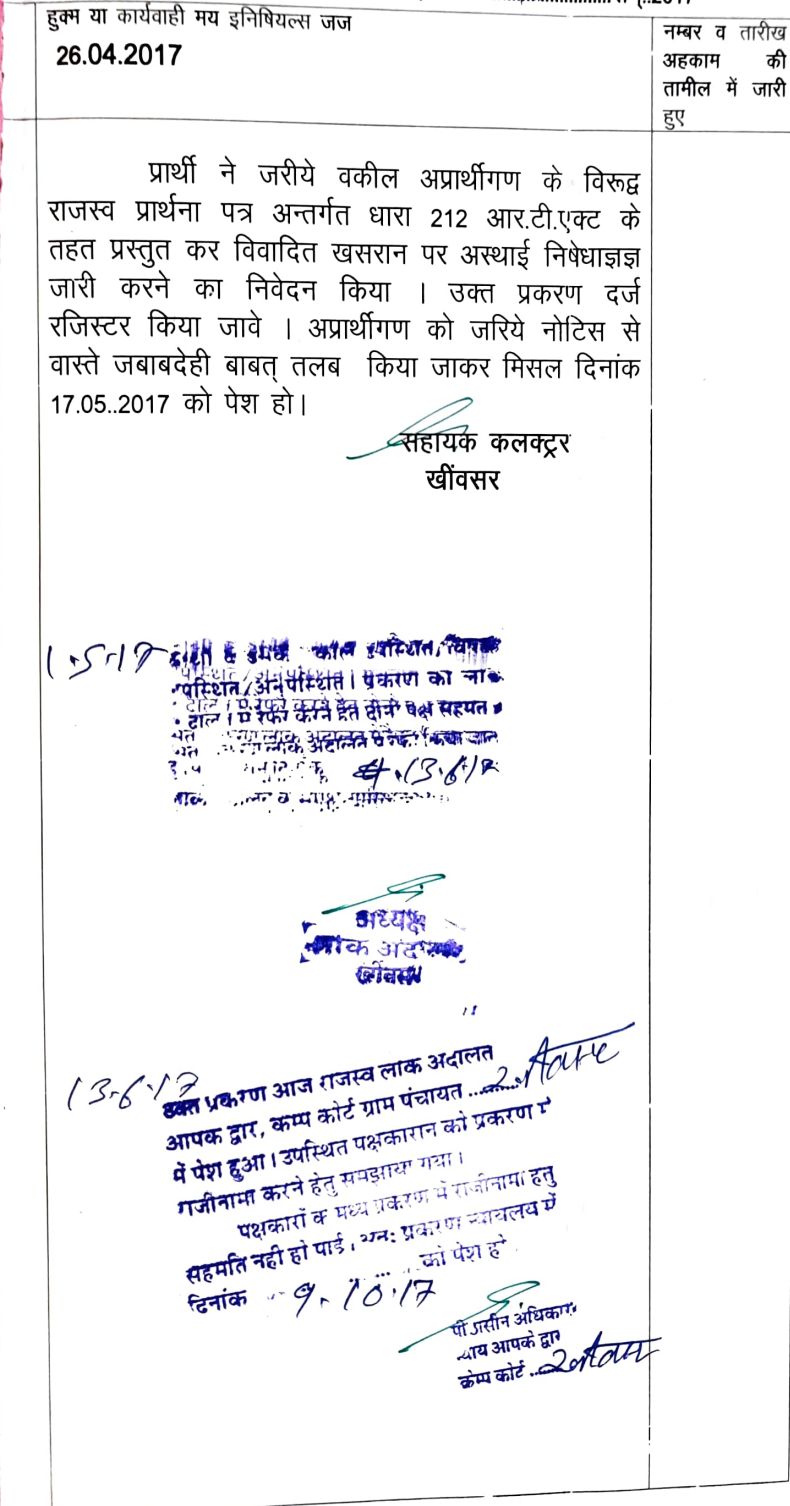 हुक्म या कार्यवाही मय इनिषियल्स जज
26.04.2017
नम्बर व तारीख
अहकाम की
तामील में जारी
हुए
प्रार्थी ने जरीये वकील अप्रार्थीगण के विरूद्व
राजस्व प्रार्थना पत्र अन्तर्गत धारा 212 आर.टी.एक्ट के
तहत प्रस्तुत कर विवादित खसरान पर अस्थाई निषेधाज्ञज्ञ
जारी करने का निवेदन किया । उक्त प्रकरण दर्ज
रजिस्टर किया जावे । अप्रार्थीगण को जरिये नोटिस से
वास्ते जबाबदेही बाबत् तलब किया जाकर मिसल दिनांक
17.05..2017 को पेश हो।
सहायक कलक्ट्रर
खींवसर
उपस्थित/अनुपस्थित। प्रकरण का
रेफर करने हेतु दोनों पक्ष सहमत
लोक अदालत
13.6.17
अध्यक्ष
खींवसर
13.6.17
उक्त प्रकरण आज राजस्व लोक अदालत
आपके द्वार, कम्प कोर्ट ग्राम पंचायत
में पेश हुआ। उपस्थित पक्षकारान को प्रकरण में
राजीनामा करने हेतु समझाया गया।
पक्षकारों के मध्य प्रकरण में राजीनामा हेतु
सहमति नही हो पाई। प्रकरण न्यायलय में
दिनांक 9.10.17 को पेश हो
पीठासीन अधिकारी
न्याय आपके द्वार
केम्प कोर्ट